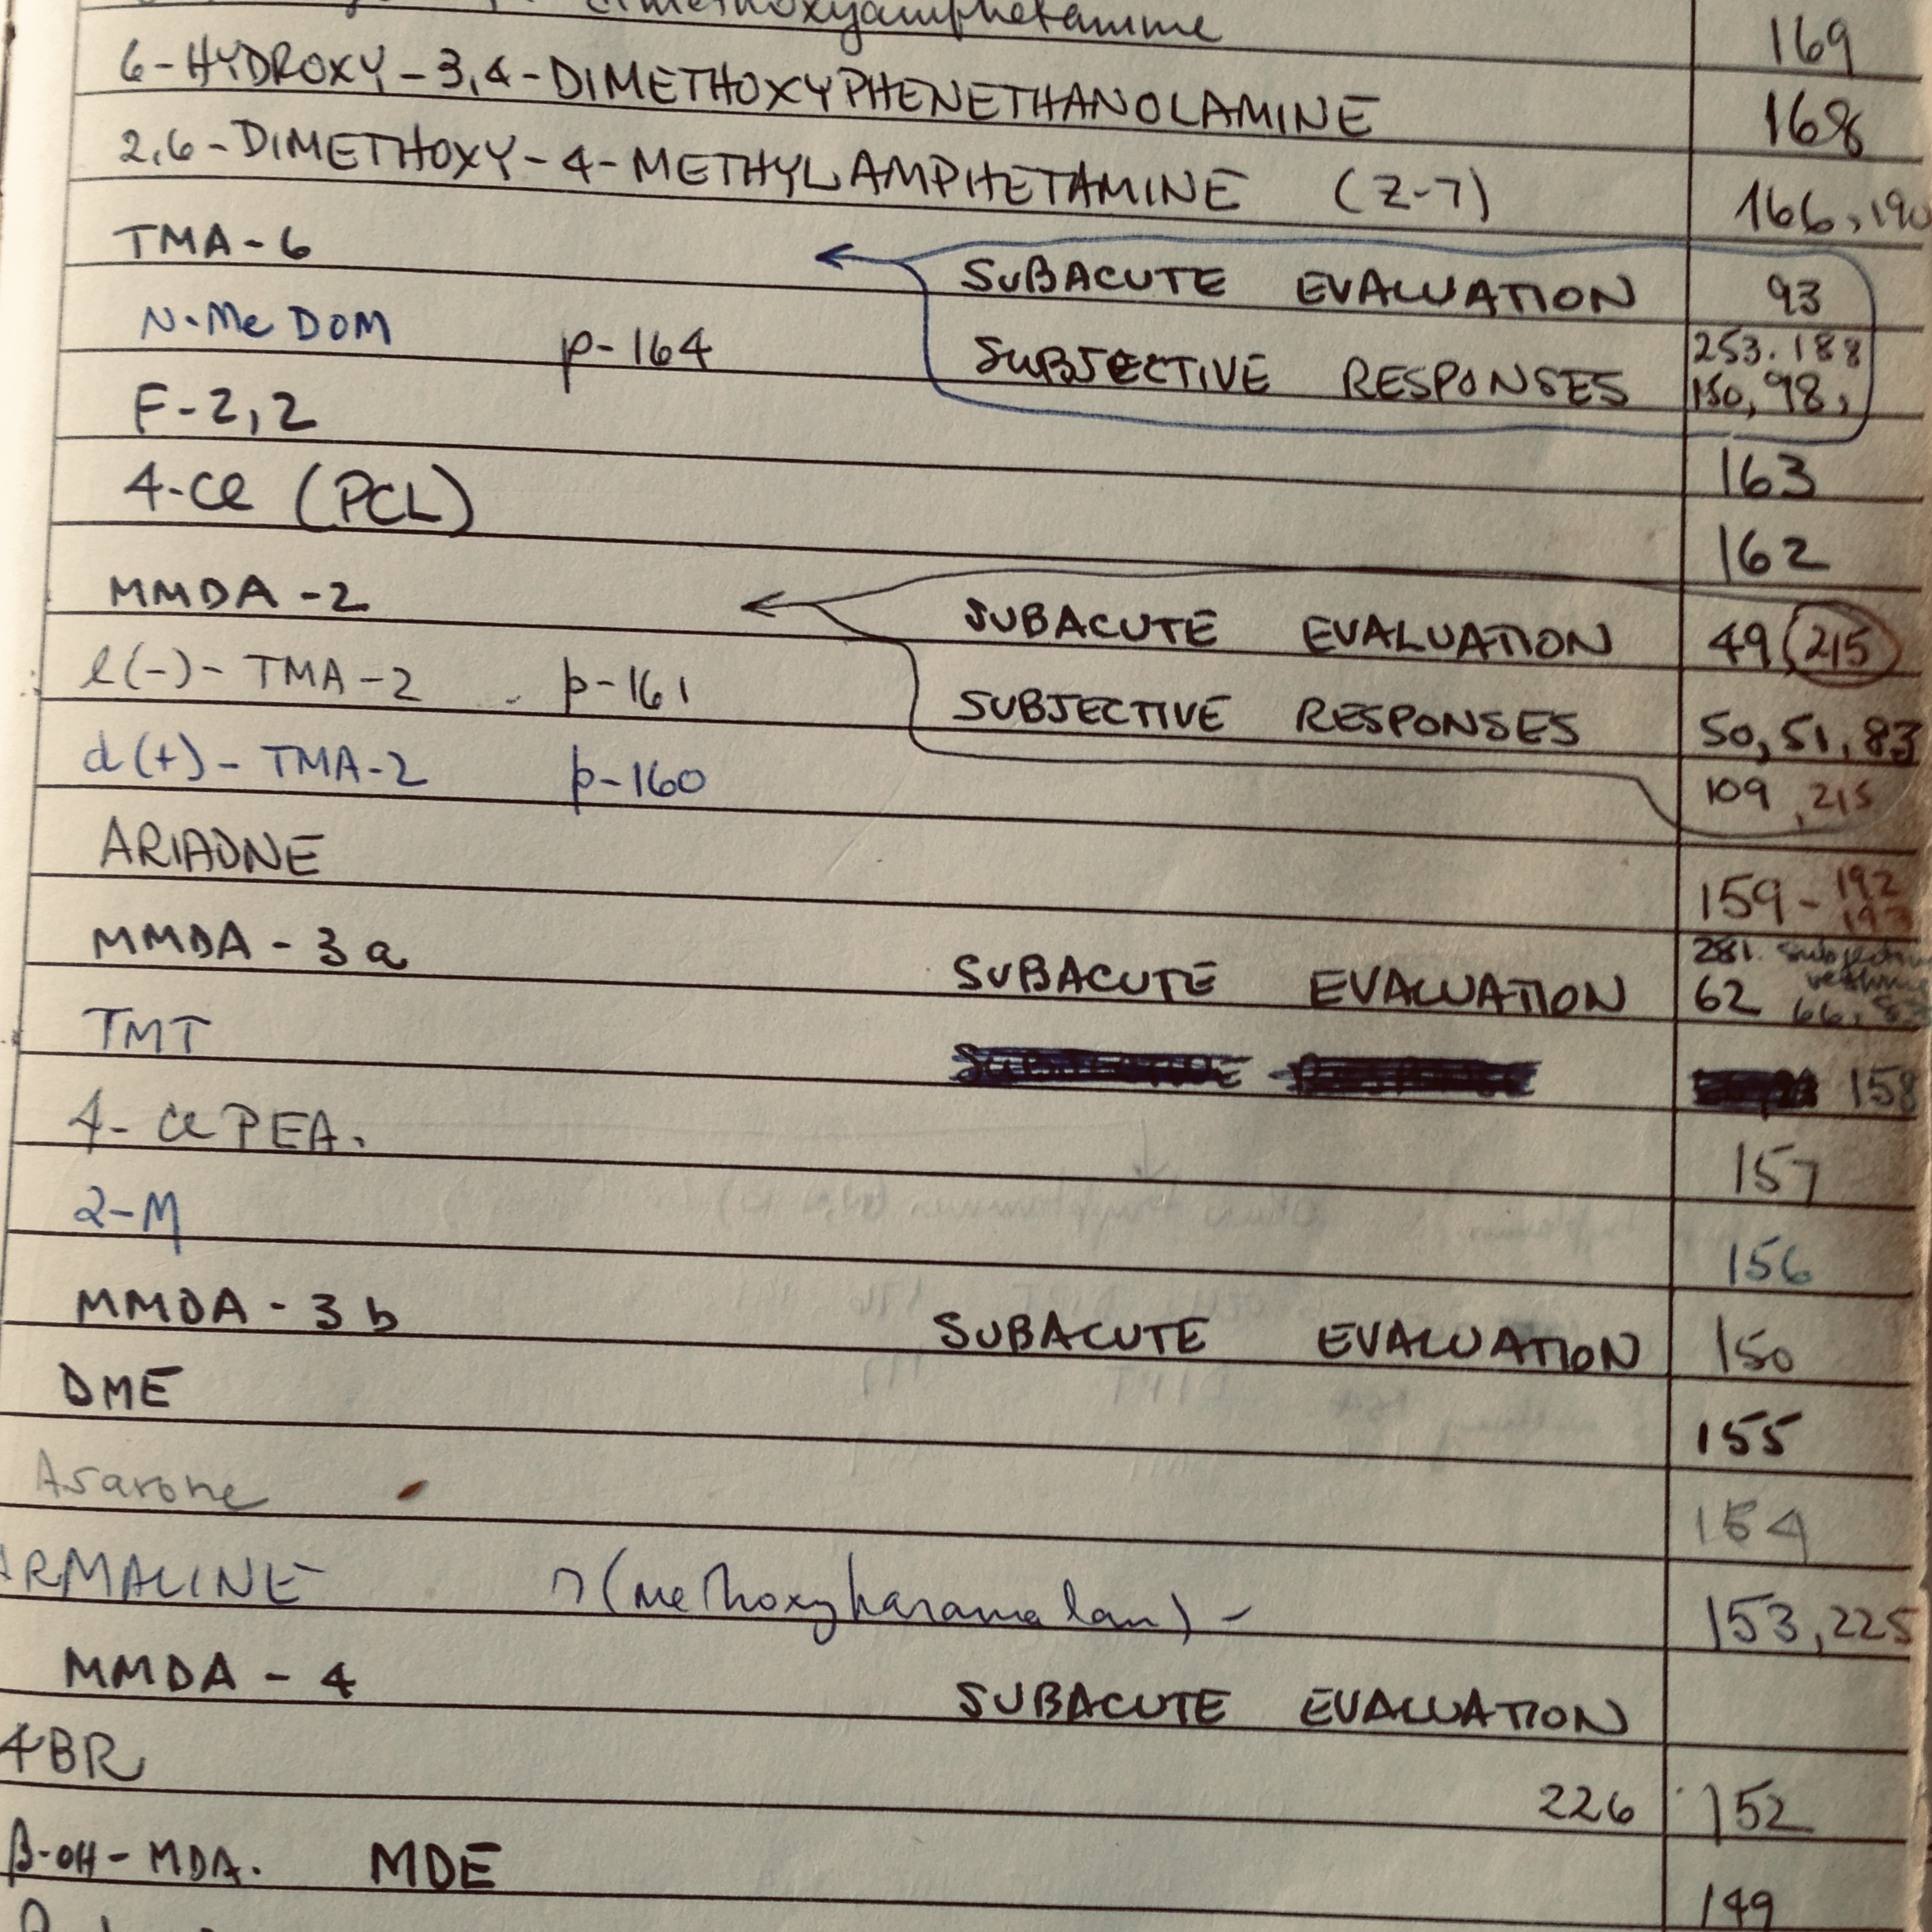 dimethoxyamphetamine 169
6-HYDROXY-3,4-DIMETHOXYPHENETHANOLAMINE 168
2,6-DIMETHOXY-4-METHYLAMPHETAMINE (Z-7) 166, 190
TMA-6 SUBACUTE EVALUATION 93
N-Me DOM p-164 SUBJECTIVE RESPONSES 253.188
150, 98,
F-2,2 163
4-Cl (PCL) 162
MMDA-2 SUBACUTE EVALUATION 49, 215
l(-)-TMA-2 p-161 SUBJECTIVE RESPONSES 50, 51, 83
d(+)-TMA-2 p-160 109, 215
ARIADNE 159- 192
MMDA-3a SUBACUTE EVALUATION 281.
62 66,
TMT 158
4-Cl PEA. 157
2-M 156
MMDA-3b SUBACUTE EVALUATION 150
DME 155
Asarone 154
ARMALINE (methoxyharamalan) - 153, 225
MMDA-4 SUBACUTE EVALUATION
4BR 226 152
β-OH-MDA. MDE 149